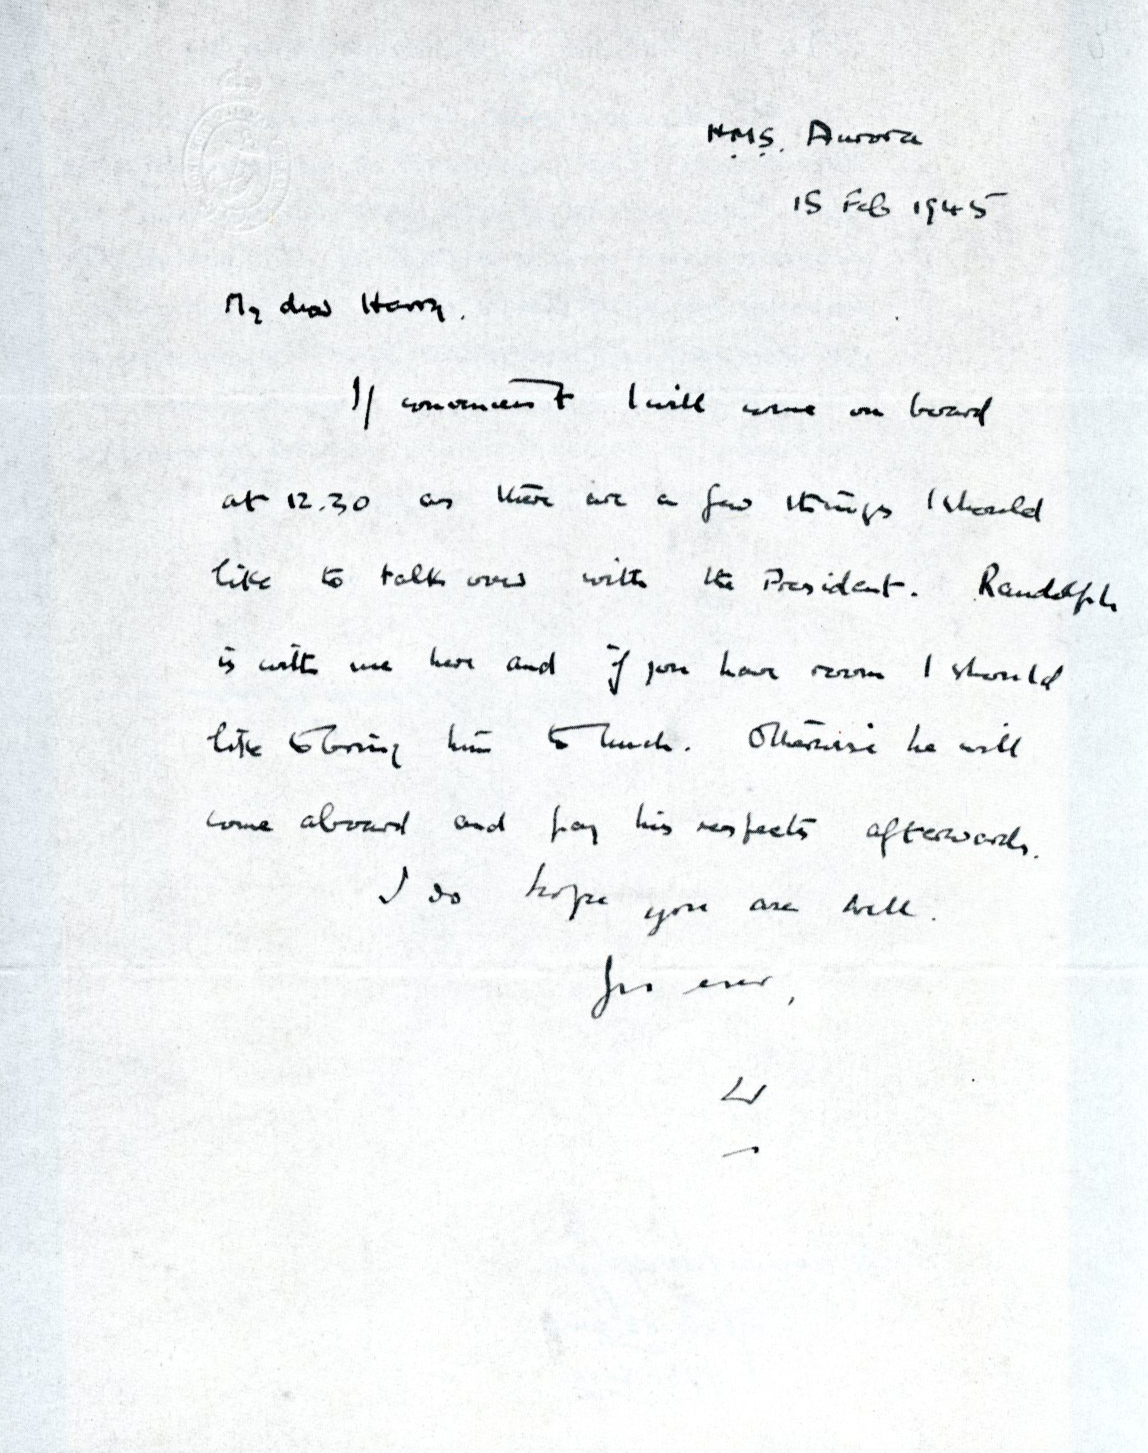 H.M.S. Aurora
15 Feb 1945
My dear Harry.
If convenient I will come on board
at 12.30 as there are a few things I should
like to talk over with the President. Randolph
is with me here and if you have room I should
like to bring him to lunch. Otherwise he will
come aboard and pay his respects afterwards.
I do hope you are well.
ever,
W